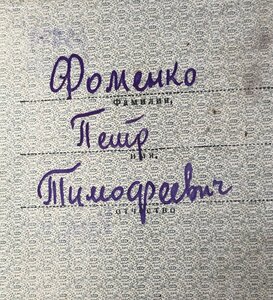 Фоменко
Фамилия,
Петр
имя,
Тимофеевич
отчество